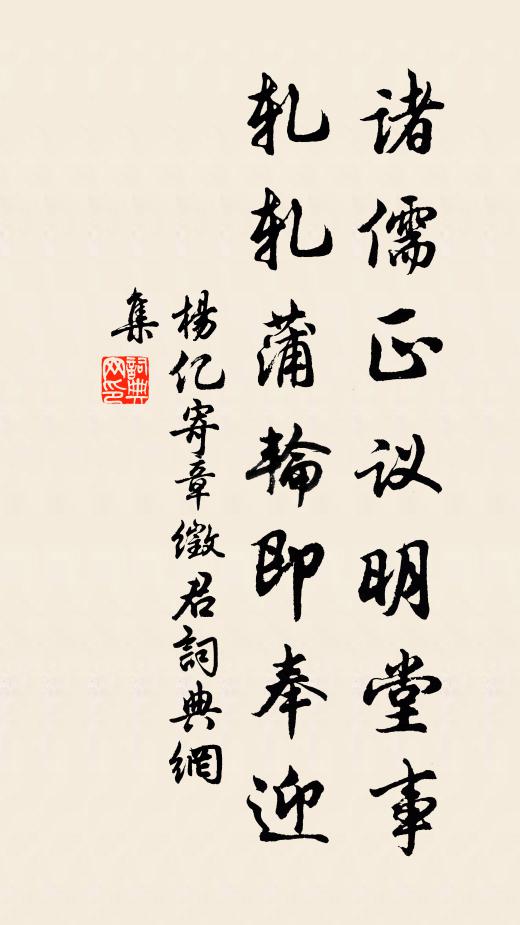 诸儒正议明堂事
轧轧蒲輪即奉迎
楊亿寄章徵君詞典網
集
詞典
网印